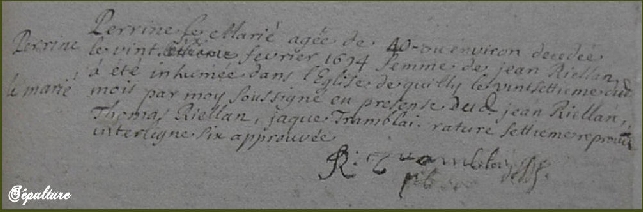 Perrine le Marié agée de 40 ou environ decedée
Perrine
le vint settieme six fevrier 1694 femme de jean Riellan
a été inhumée dans l'Eglise de quilly le vint settieme dud
le marié
mois par moy soussigné en presense dud jean Riellan,
Thomas Riellan, jaque Tramblai. rature settieme reprouvée
interligne six approuvée
R:
Sépulture